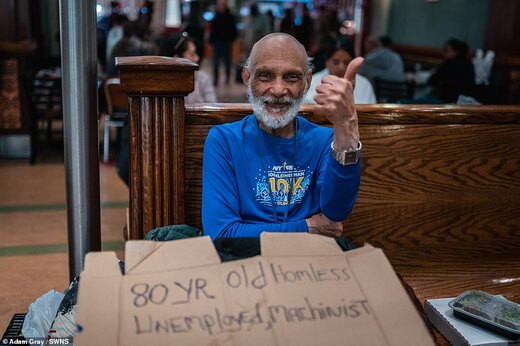 JOE KLEINERMAN
10K
80 YR Old Homless
Unemployed, Machinist
© Adam Gray / SWNS